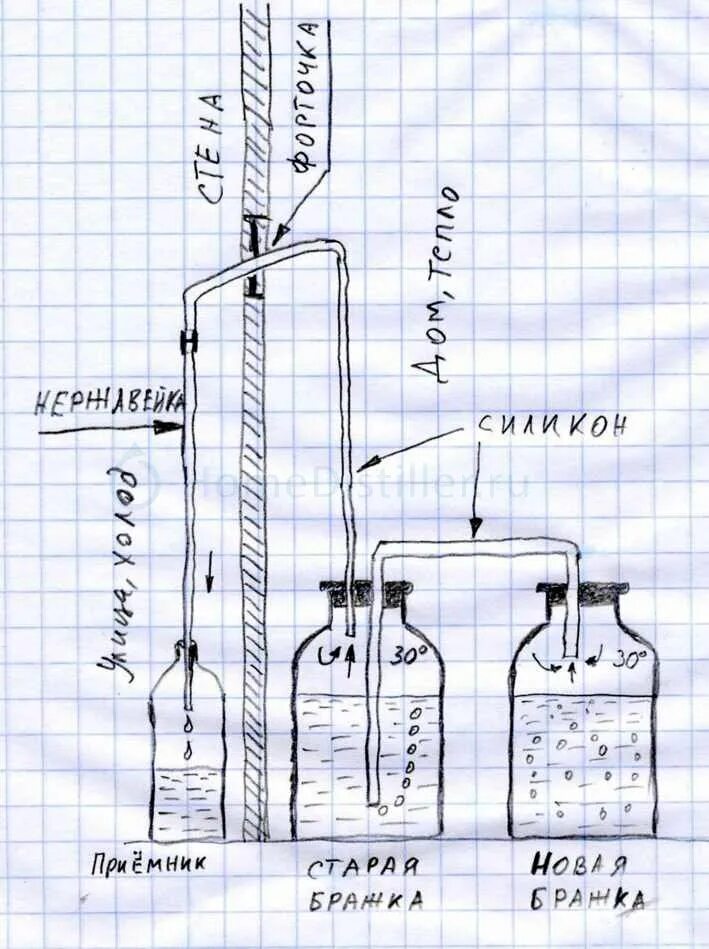 СТЕНА
ФОРТОЧКА
Дом, Тепло
НЕРЖАВЕЙКА
СИЛИКОН
HomeDistiller.ru
Улица, холод
30°
30°
Приёмник
СТАРАЯ
БРАЖКА
НОВАЯ
БРАЖКА